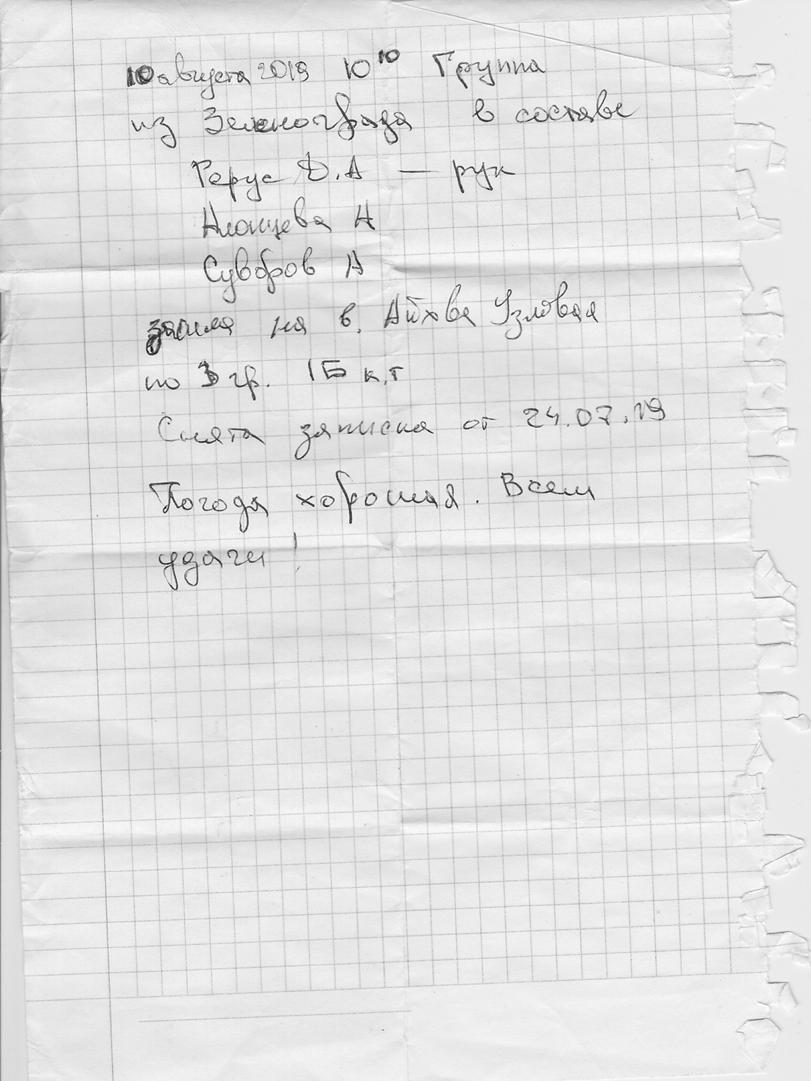 10 августа 2019 10¹⁰ Группа
из Зеленограда в составе
Герус Д.А — рук
А
Суворов А
зашла на в. Айхва Узловая
по З гр. 1Б к.т
Снята записка от 24.07.19
Погода хорошая. Всем
удачи!